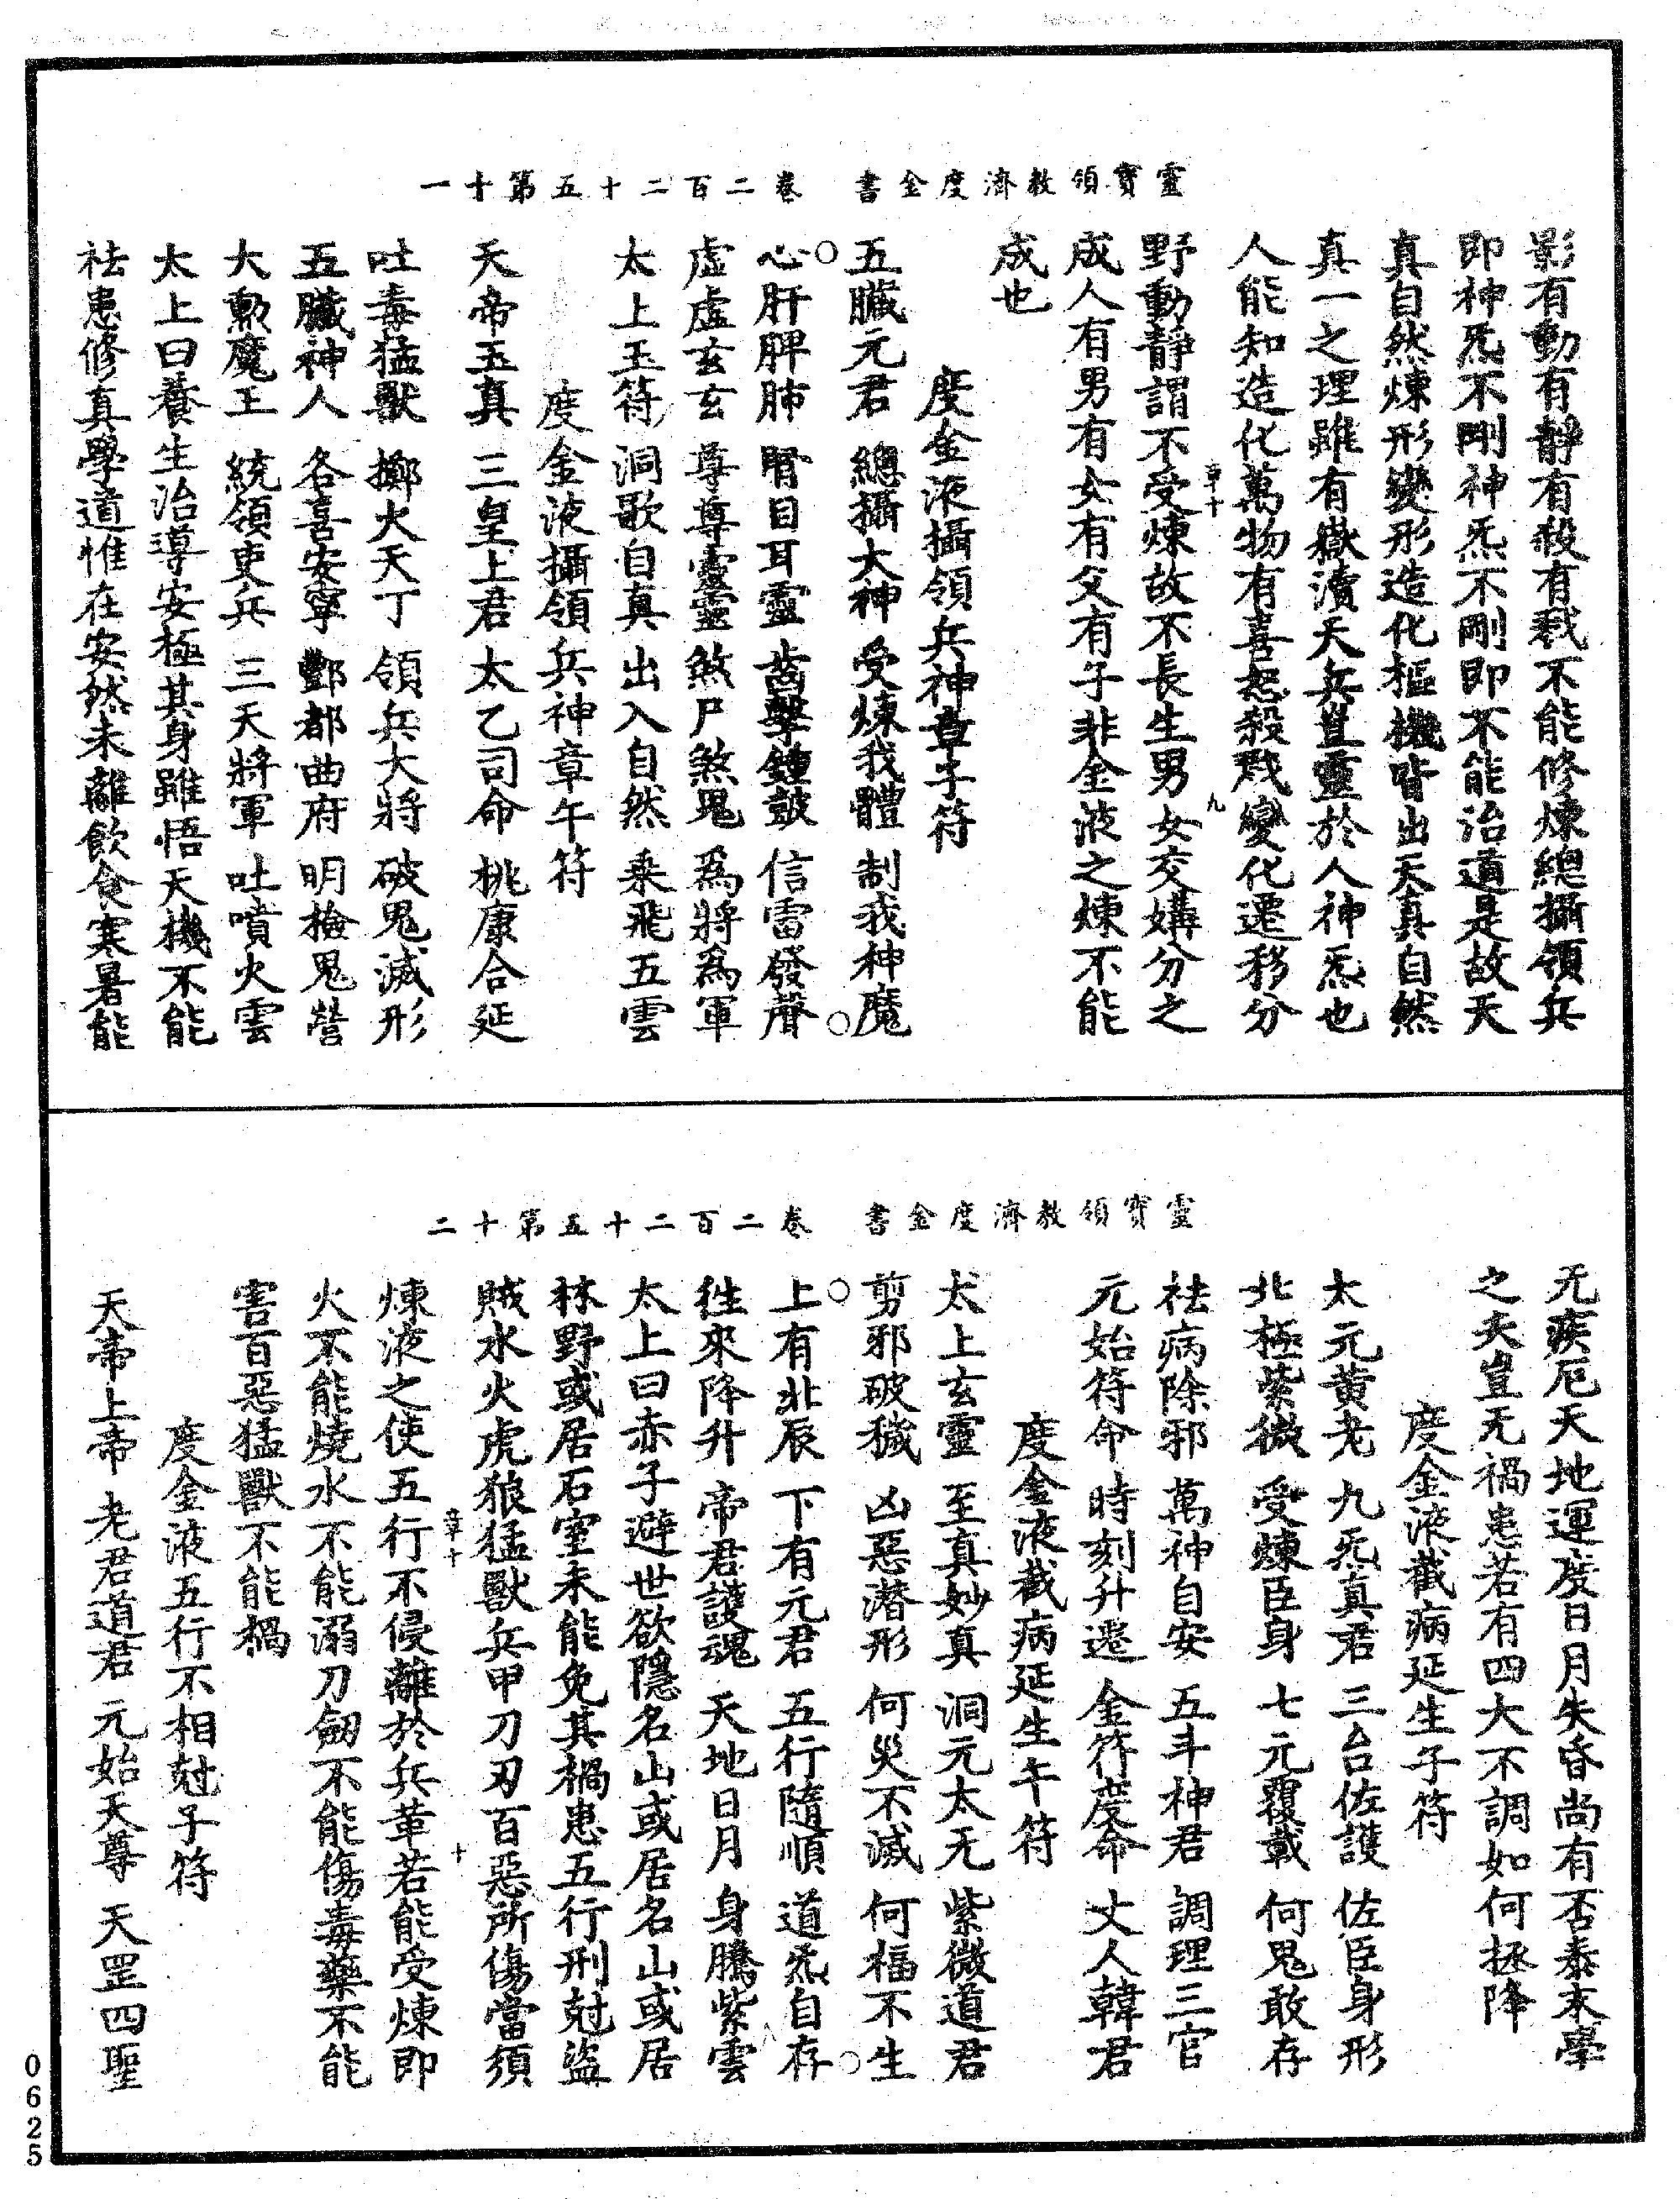 靈寶領教濟度金書　卷二百二十五第十一
影有動有靜有殺有戮不能修煉總攝領兵
即神炁不剛神炁不剛即不能治道是故天
真自然煉形變形造化樞機皆出天真自然
真一之理雖有嶽瀆天兵豈靈於人神炁也
人能知造化萬物有喜怒殺戮變化遷移分
野動靜謂不受煉故不長生男女交媾分之
章十
九
成人有男有女有父有子非金液之煉不能
成也
度金液攝領兵神章子符
五臟元君　總攝大神　受煉我體　制我神魔
心肝脾肺　腎目耳靈　齒擊鍾鼓　信雷發聲
虛虛玄玄　尊尊靈靈　煞尸煞鬼　為將為軍
太上玉符　洞歌自真　出入自然　乘飛五雲
度金液攝領兵神章午符
天帝五真　三皇上君　太乙司命　桃康合延
吐毒猛獸　擲火天丁　領兵大將　破鬼滅形
五臟神人　各喜安寧　酆都曲府　明檢鬼營
大勲魔王　統領吏兵　三天將軍　吐噴火雲
太上曰養生治導安極其身雖悟天機不能
祛患修真學道惟在安然未離飲食寒暑能
靈寶領教濟度金書　卷二百二十五第十二
无疾厄天地運度日月失昏尚有否泰末學
之夫豈无禍患若有四大不調如何拯降
度金液截病延生子符
太元黃老　九炁真君　三台佐護　佐臣身形
北極紫微　受煉臣身　七元覆載　何鬼敢存
祛病除邪　萬神自安　五斗神君　調理三官
元始符命　時刻升遷　金符度命　丈人韓君
度金液截病延生午符
太上玄靈　至真妙真　洞元太无　紫微道君
剪邪破穢　凶惡潛形　何災不滅　何福不生
上有北辰　下有元君　五行隨順　道炁自存
徃來降升　帝君護魂　天地日月　身騰紫雲
太上曰赤子避世欲隱名山或居名山或居
林野或居石室未能免其禍患五行刑尅盜
賊水火虎狼猛獸兵甲刀刃百惡所傷當須
煉液之使五行不侵離於兵革若能受煉即
章十
十
火不能燒水不能溺刀劒不能傷毒藥不能
害百惡猛獸不能禍
度金液五行不相尅子符
天帝上帝　老君道君　元始天尊　天罡四聖
0625